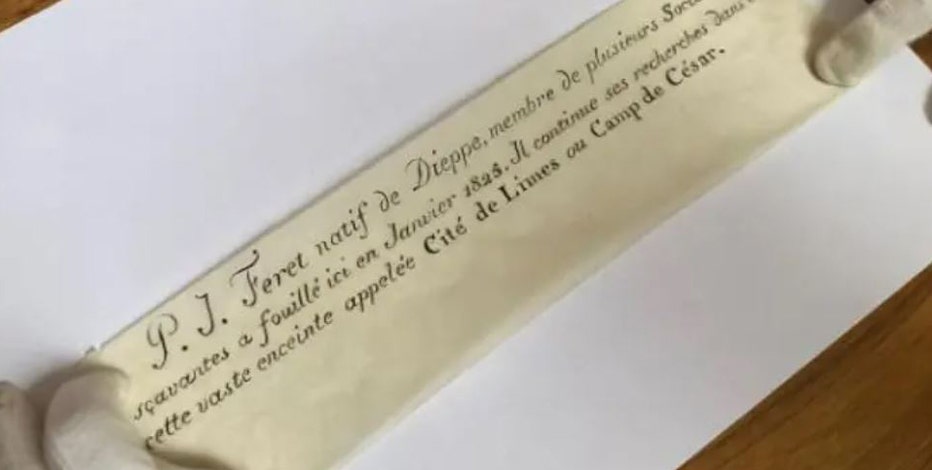 P. J. Feret natif de Dieppe, membre de plusieurs
sçavantes a fouillé ici en Janvier 1825. Il continue ses recherches dans
cette vaste enceinte appelée Cité de Limes ou Camp de César.